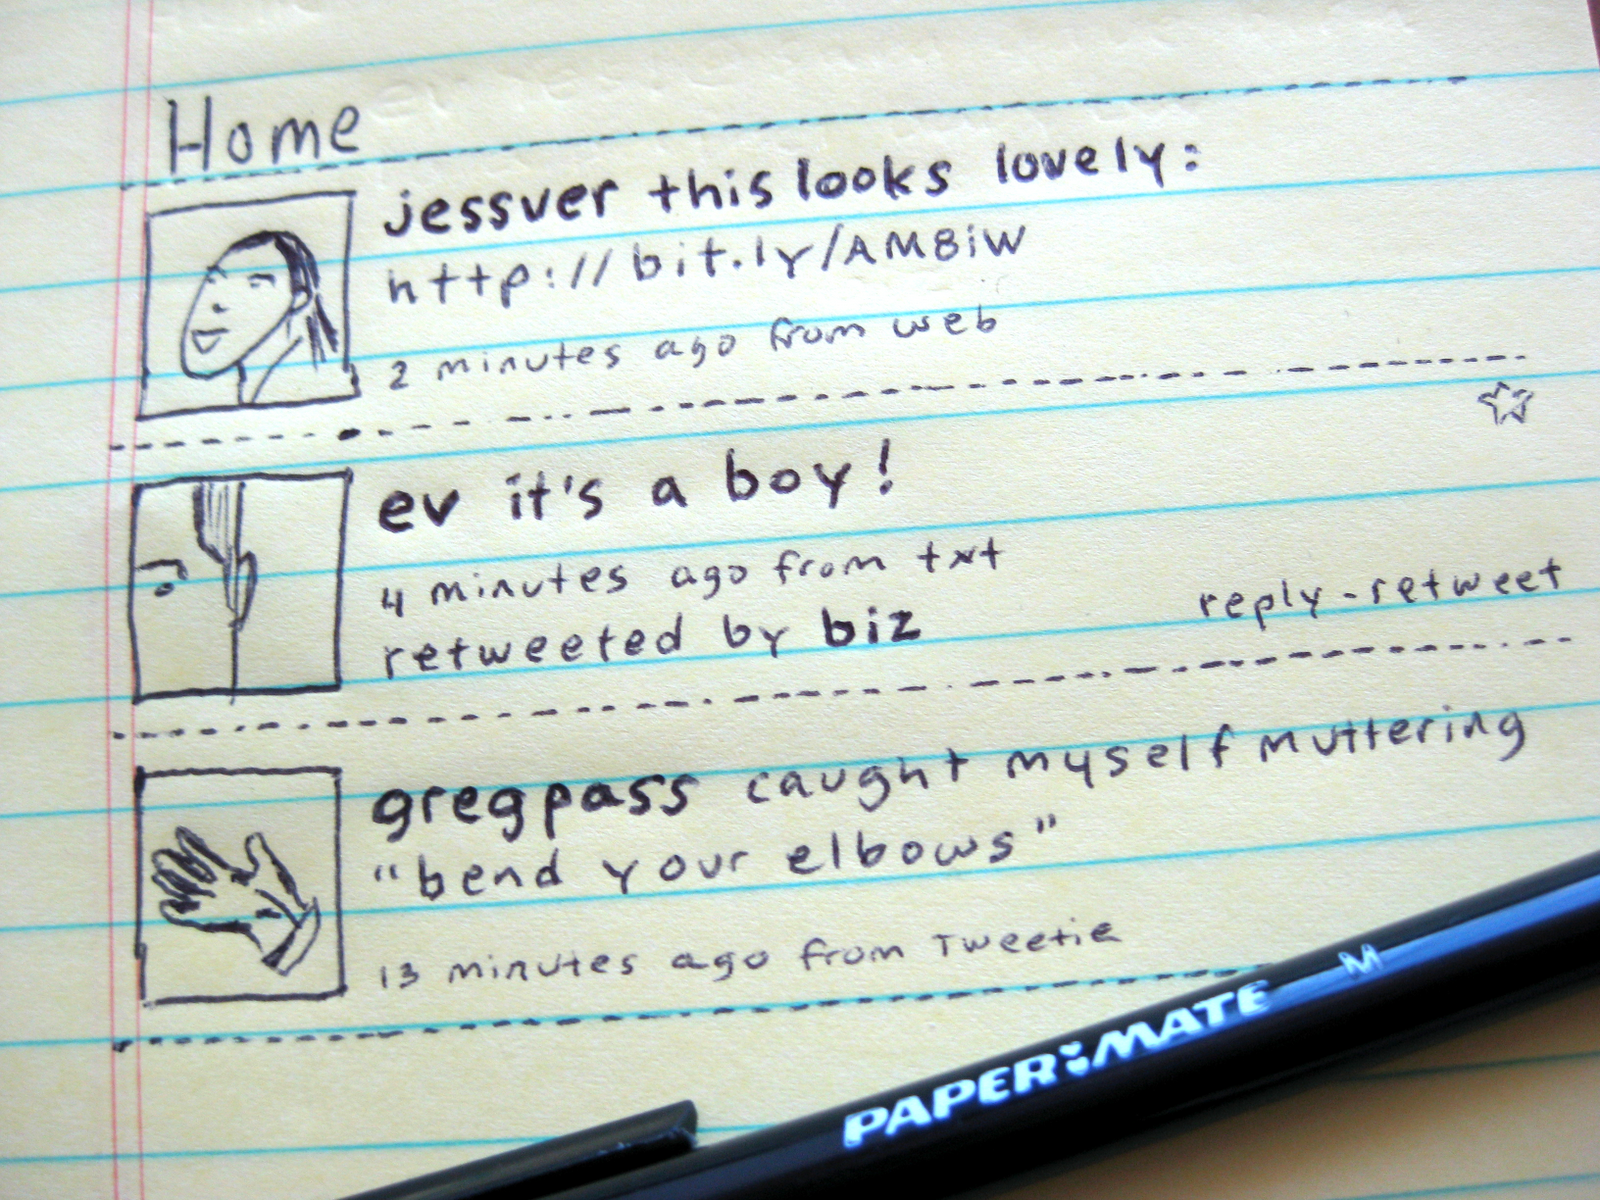 Home
jessver this looks lovely:
http://bit.ly/AM8iW
2 minutes ago from web
ev it's a boy!
4 minutes ago from txt
retweeted by biz
reply - retweet
gregpass caught myself muttering
"bend your elbows"
13 minutes ago from Tweetie
PAPER MATE M